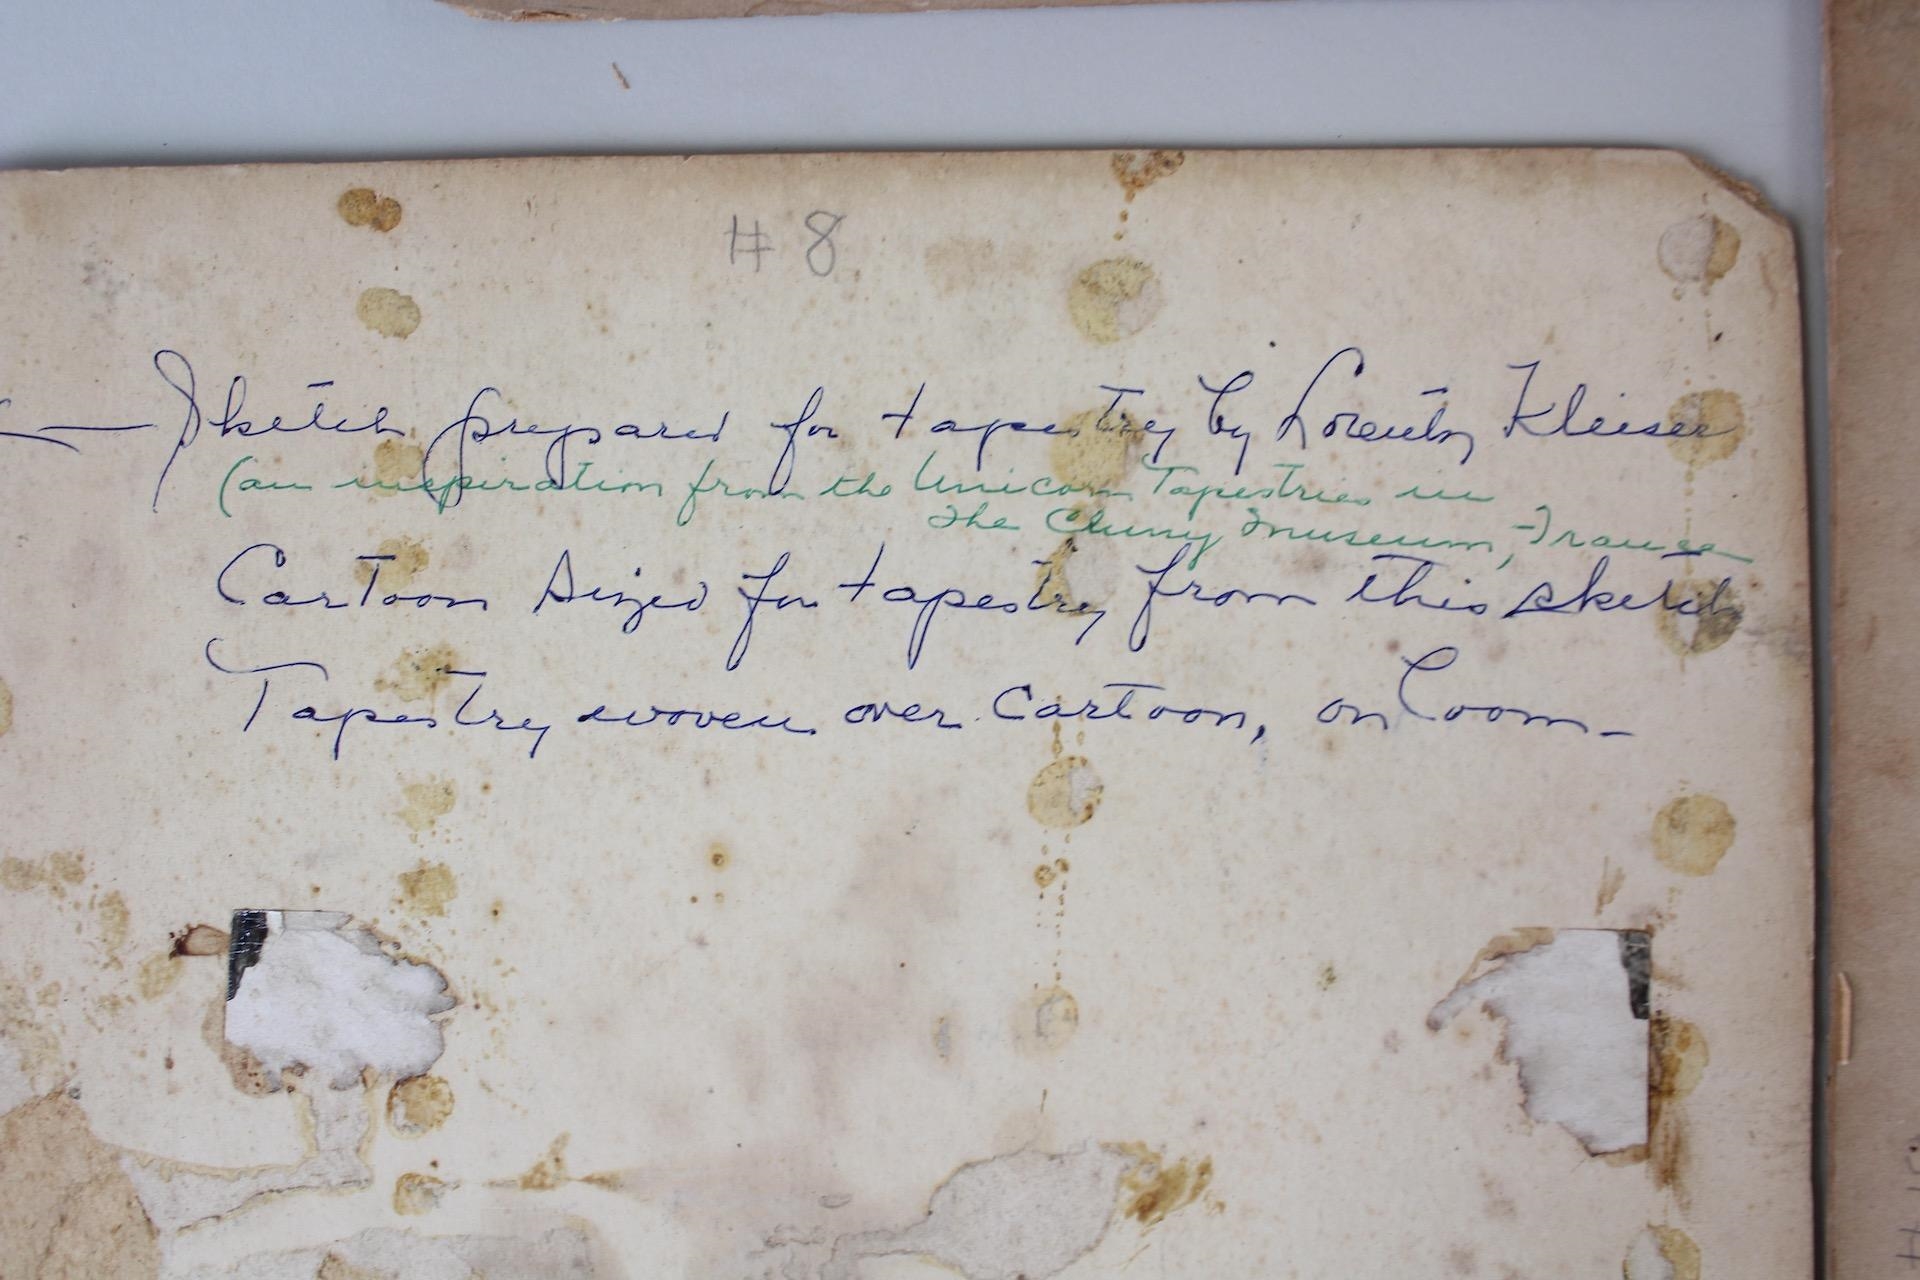 # 8
Sketch prepared for tapestry by Lorentz Kleiser
(an inspiration from the Unicorn Tapestries in
the Cluny Museum, France
Cartoon sized for tapestry from this sketch
Tapestry woven over cartoon, on loom